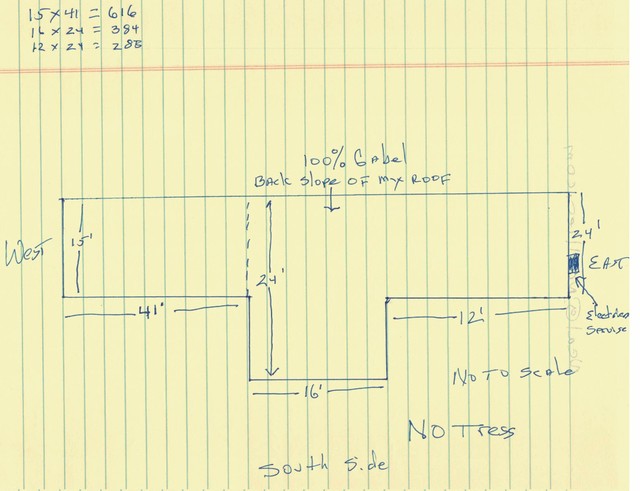 15 x 41 = 616
16 x 24 = 384
12 x 24 = 288
100% Gabel
BACK Slope OF myx ROOF
West
15'
24'
24'
EAST
41'
12'
Electrical
Service
16'
NO TO Scale
NO Tress
South Side